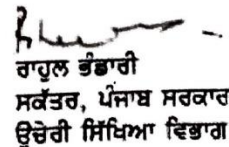 ਰਾਹੁਲ ਭੰਡਾਰੀ
ਸਕੱਤਰ, ਪੰਜਾਬ ਸਰਕਾਰ
ਉਚੇਰੀ ਸਿੱਖਿਆ ਵਿਭਾਗ